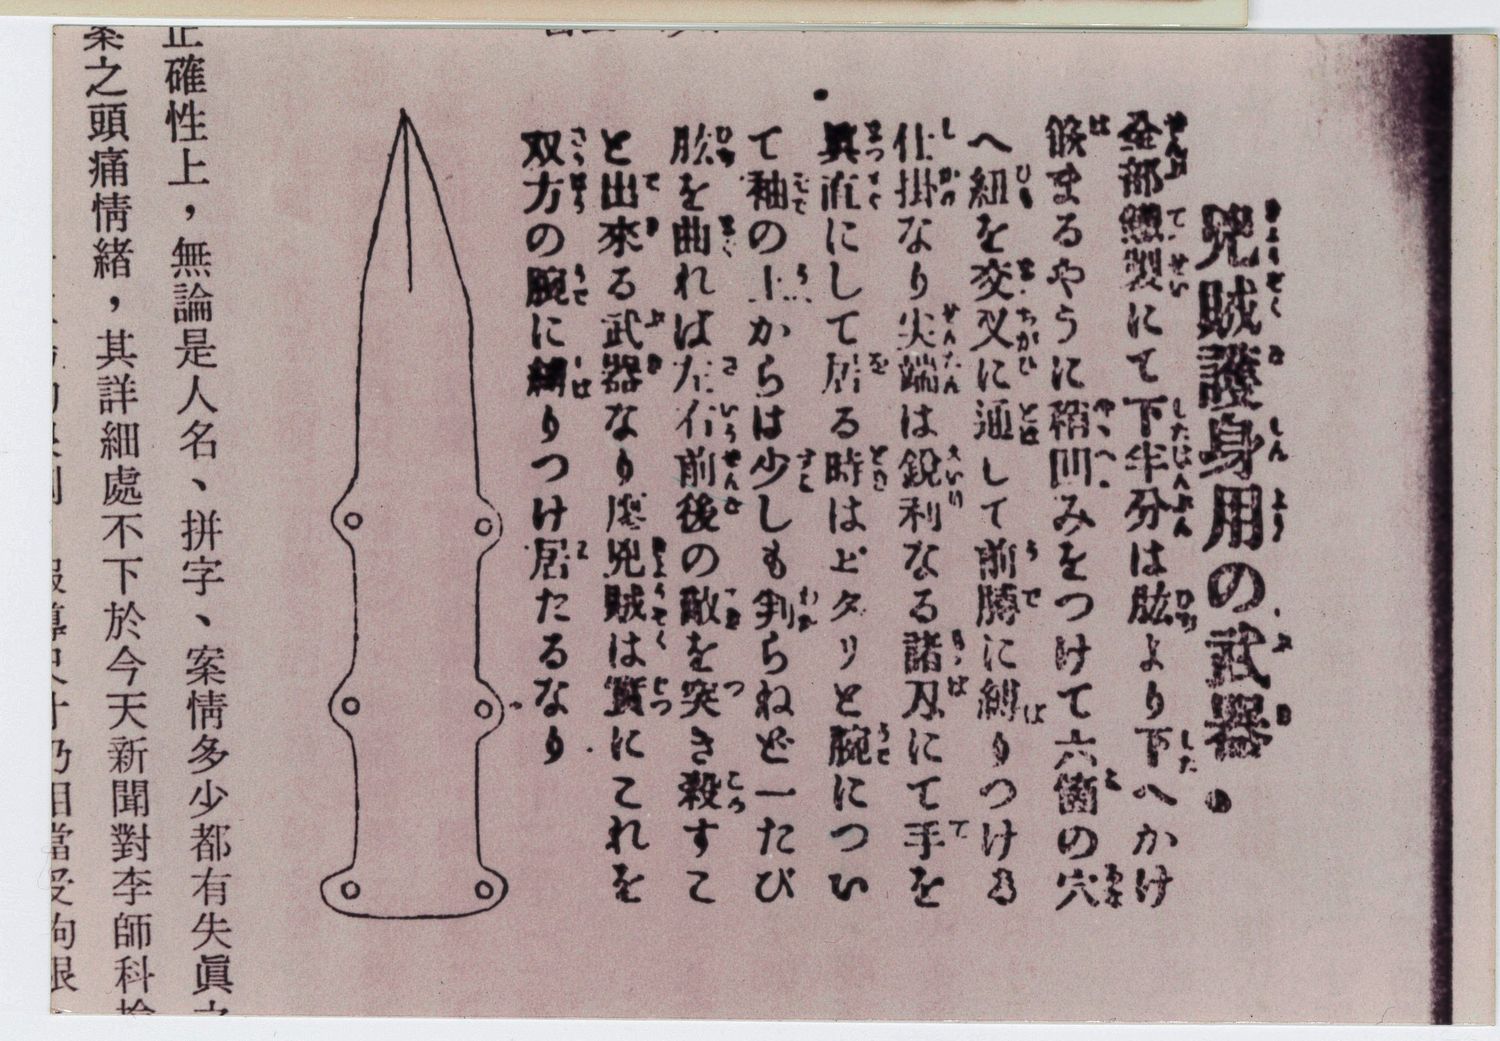 兇賊護身用の武器
全部鐵製にて下半分は肱より下へかけ
篏まるやうに稍凹みをつけて六箇の穴
へ紐を交叉に通して前膊に縛りつける
仕掛なり尖端は鋭利なる諸刃にて手を
眞直にして居る時はピタリと腕につい
て袖の上からは少しも判らねど一たび
肱を曲れば左右前後の敵を突き殺すこ
と出來る武器なり兇賊は實にこれを
双方の腕に縛りつけ居たるなり
正確性上，無論是人名、拼字、案情多少都有失眞之
案之頭痛情緒，其詳細處不下於今天新聞對李師科搶